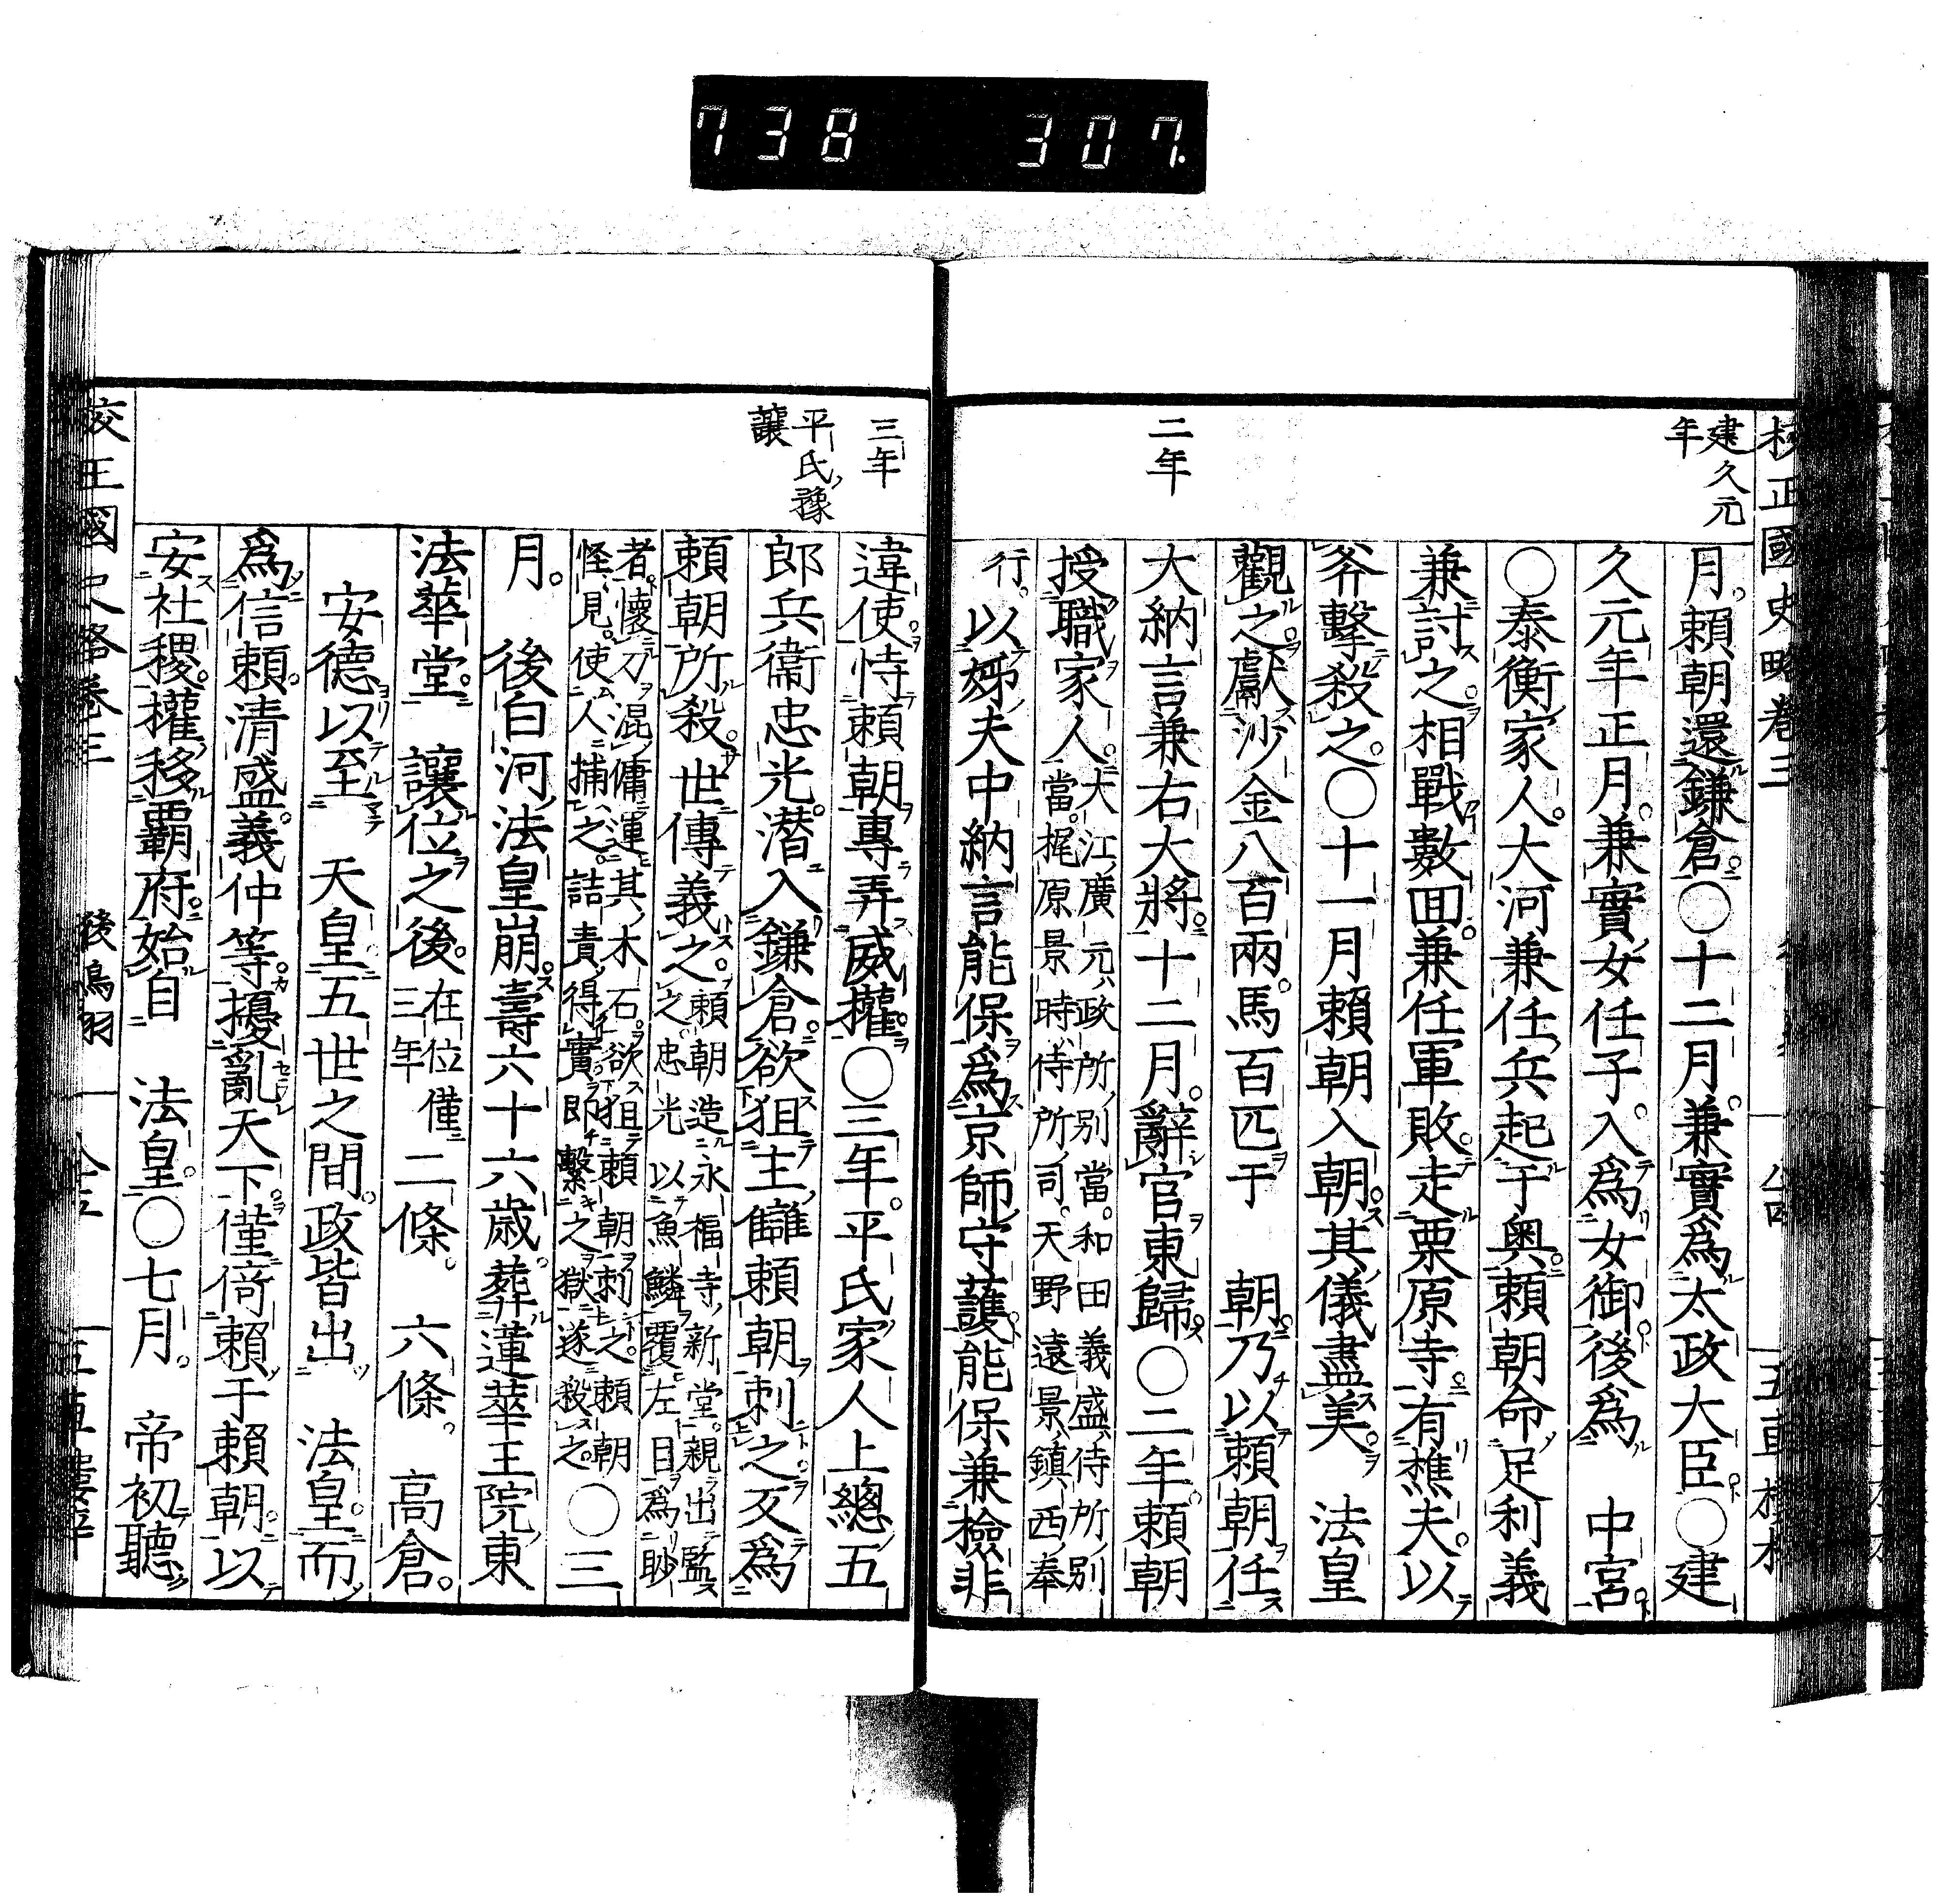 738 307.
校正國史略卷三
建久元
年
二年
月。賴朝還鎌倉。○十二月。兼實爲太政大臣。○建
久元年正月。兼實女任子。入爲女御。後爲 中宮。
○泰衡家人。大河兼任。兵起于奥。賴朝命足利義
兼討之。相戰數回。兼任軍敗。走栗原寺。有樵夫。以
斧擊殺之。○十一月賴朝入朝。其儀盡美。 法皇
觀之。獻沙金八百兩。馬百匹于 朝。乃以賴朝任
大納言兼右大將。十二月。辭官東歸。○二年。賴朝
授職家人。大江廣元、政所別當。和田義盛、侍所別
當。梶原景時、侍所司。天野遠景、鎮西奉
行。以姊夫中納言能保爲京師守護。能保兼檢非
三年
平氏豫
讓
違使。恃賴朝專弄威權。○三年。平氏家人上總五
郎兵衞忠光。潛入鎌倉。欲狙主讎賴朝刺之。又爲
賴朝所殺。世傳義之。賴朝造永福寺新堂。親出監
之。忠光以魚鱗覆左目爲眇
者。懷刀混傭運其木石。欲狙賴朝刺之。賴朝
怪見。使人捕之。詰責得實。卽繫之獄。遂殺之。○三
月。 後白河法皇崩。壽六十六歲。葬蓮華王院東
法華堂。 讓位之後。在位僅
三年 二條。 六條。 高倉。
安德以至 天皇五世之間。政皆出 法皇。而
爲信賴。清盛。義仲等。擾亂天下。僅倚賴于賴朝。以
安社稷。權移覇府。始自 法皇。○七月。 帝初聽
後鳥羽